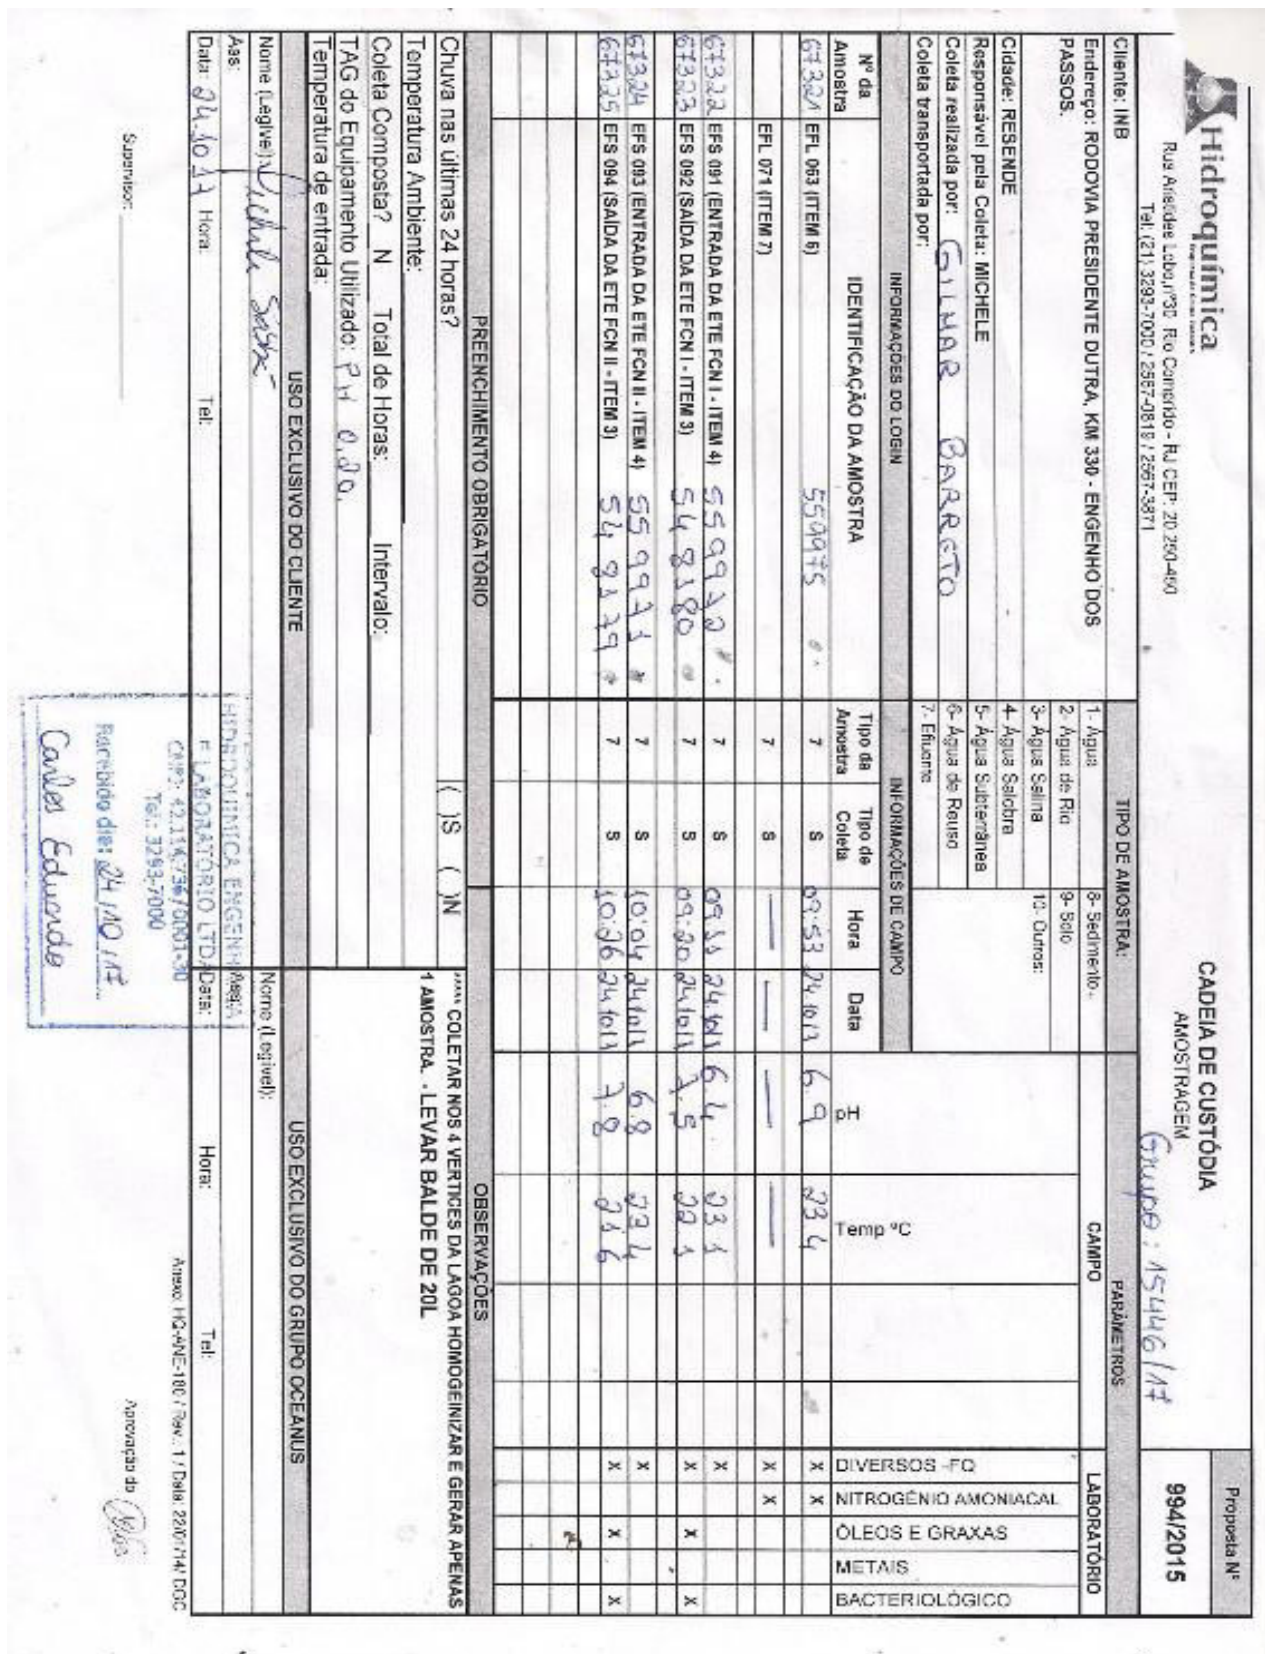 Hidroquímica
Rua Aristides Lobo, nº30 Rio Comprido - RJ CEP: 20.250-450
Tel: (21) 3293-7000 / 2567-0819 / 2567-3871
CADEIA DE CUSTÓDIA
AMOSTRAGEM
Grupo: 15446/17
Proposta Nº
994/2015
Cliente: INB
Endereço: RODOVIA PRESIDENTE DUTRA, KM 330 - ENGENHO DOS
PASSOS.
Cidade: RESENDE
Responsável pela Coleta: MICHELE
Coleta realizada por: GILMAR BARRETO
Coleta transportada por:
TIPO DE AMOSTRA:
1- Água
2- Água de Rio
3- Água Salina
4- Água Salobra
5- Água Subterrânea
6- Água de Reuso
7- Efluente
8- Sedimento
9- Solo
10- Outros:
PARÂMETROS
CAMPO
LABORATÓRIO
INFORMAÇÕES DO LOGIN
INFORMAÇÕES DE CAMPO
Nº da Amostra
IDENTIFICAÇÃO DA AMOSTRA
Tipo da Amostra
Tipo de Coleta
Hora
Data
pH
Temp ºC
DIVERSOS -FQ
NITROGÊNIO AMONIACAL
ÓLEOS E GRAXAS
METAIS
BACTERIOLÓGICO
67321 EFL 063 (ITEM 6) 559975 7 S 09:53 24.10.17 6.9 23.4 X X
EFL 071 (ITEM 7) 7 S — — — — X X
67322 EFS 091 (ENTRADA DA ETE FCN I - ITEM 4) 7 S 24.10.17 6.4 23.1 X
67323 EFS 092 (SAÍDA DA ETE FCN I - ITEM 3) 548180 7 S 09:20 24.10.17 7.5 22.1 X X X
67324 EFS 093 (ENTRADA DA ETE FCN II - ITEM 4) 559971 7 S 10:04 24.10.17 6.8 23.4 X
67325 EFS 094 (SAÍDA DA ETE FCN II - ITEM 3) 548179 7 S 10:26 24.10.17 7.8 21.6 X X X
PREENCHIMENTO OBRIGATÓRIO
OBSERVAÇÕES
Chuva nas últimas 24 horas? ( )S ( )N
Temperatura Ambiente:
Coleta Composta? N Total de Horas: Intervalo:
TAG do Equipamento Utilizado: PH
Temperatura de entrada:
**** COLETAR NOS 4 VERTICES DA LAGOA HOMOGEINIZAR E GERAR APENAS
1 AMOSTRA. - LEVAR BALDE DE 20L
USO EXCLUSIVO DO CLIENTE
USO EXCLUSIVO DO GRUPO OCEANUS
Nome (Legível):
Nome (Legível):
Ass:
Data: 24.10.17 Hora: Tel:
Data: Hora: Tel:
HIDROQUIMICA ENGENH
E LABORATÓRIO LTDA
CNPJ: 42.114.736/0001-30
Tel.: 3293-7000
Recebido dia: 24/10/17
Carlos Eduardo
Anexo: HQ-ANE-180 / Rev.: 1 / Data: 22/01/14/ DGC
Supervisor:
Aprovação do